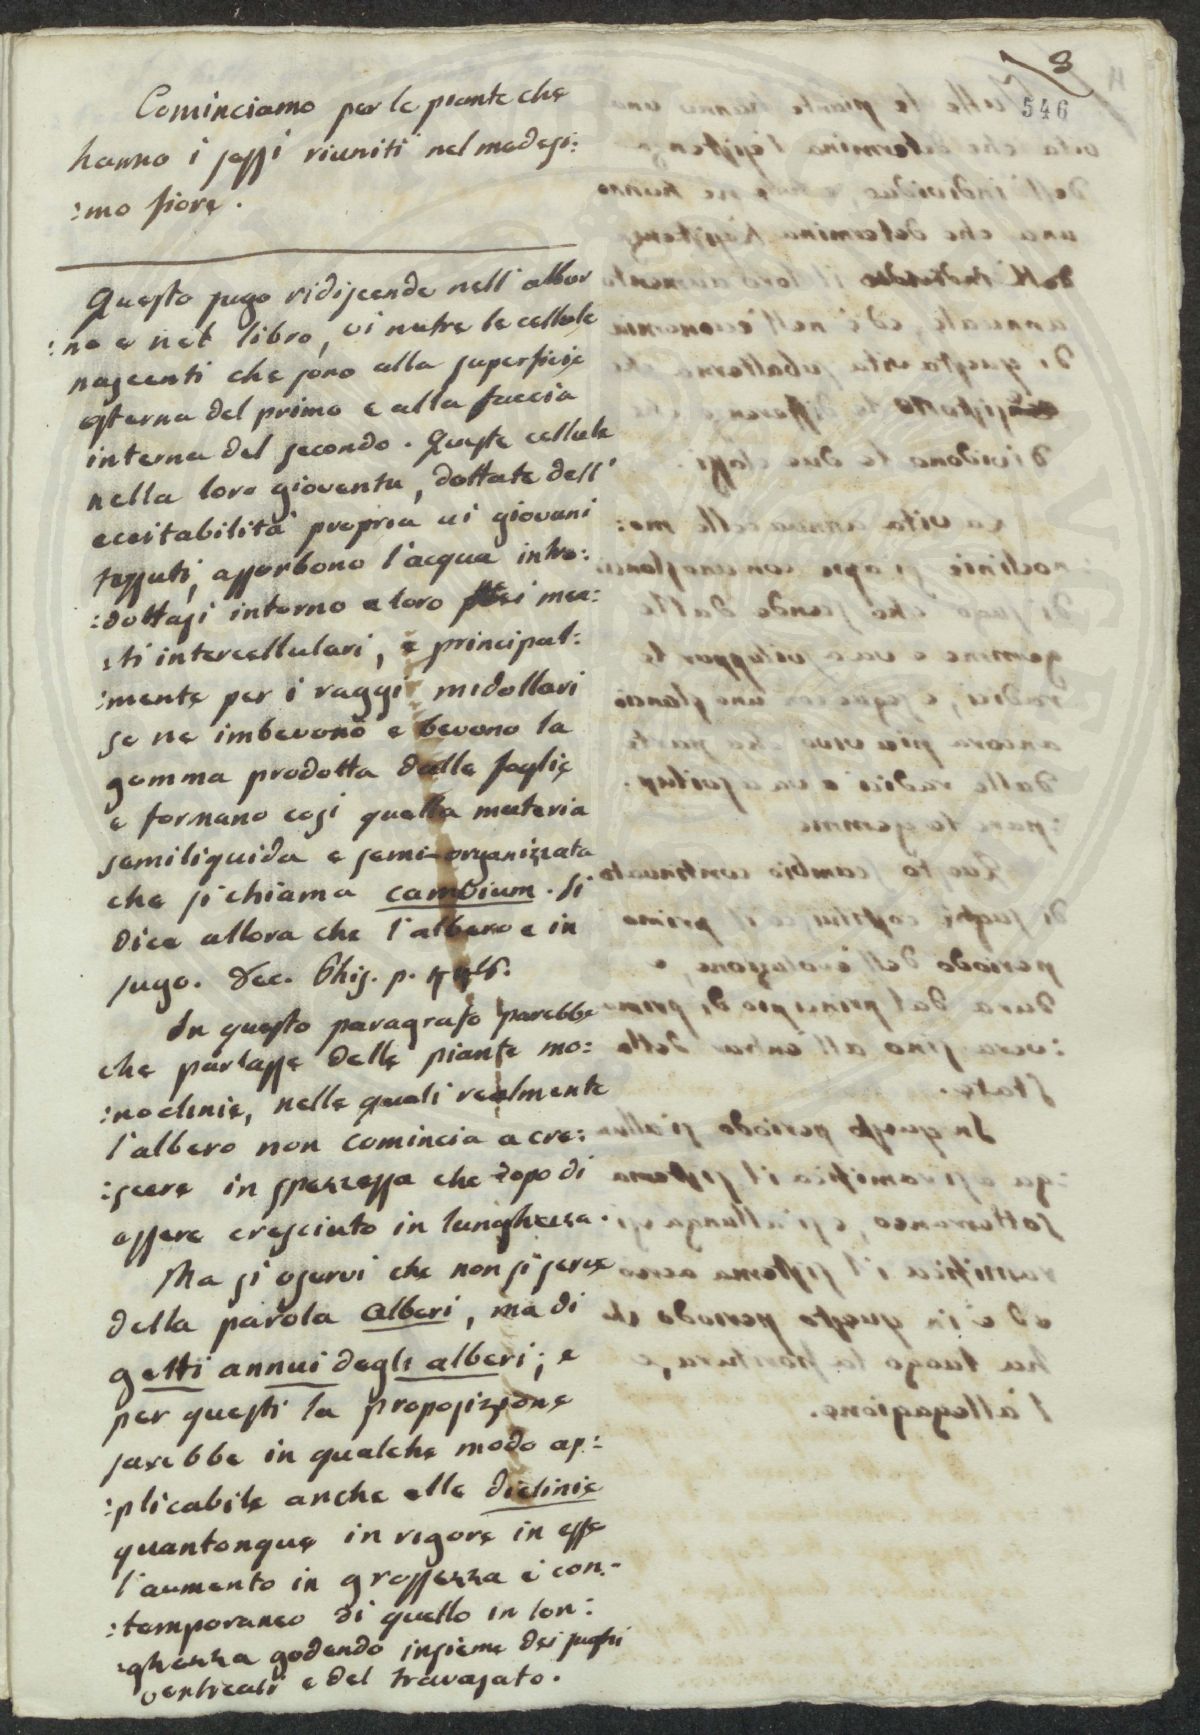 8
546
Cominciamo per le piante che
hanno i sessi riuniti nel medesi:
:mo fiore.
Questo sugo ridiscende nell'albur
:no e nel libro, vi nutre le cellule
nascenti che sono alla superficie
esterna del primo e alla faccia
interna del secondo. Queste cellule
nella loro gioventu, dottate dell'
eccitabilità propria ai giovani
tessuti, assorbono l'acqua intro:
:dottasi intorno a loro nei mea:
:ti intercellulari, e principal:
:mente per i raggi midollari
se ne imbevono e bevono la
gomma prodotta dalle foglie
e formano cosi quella materia
semiliquida e semi-organizzata
che si chiama cambium. Si
dice allora che l'albero e in
sugo. Dec. Phis. p.
In questo paragrafo parebbe
che parlasse delle piante mo:
:noclinie, nelle quali realmente
l'albero non comincia a cre:
:scere in spezzessa che dopo di
essere cresciuto in lunghezza.
Ma si oservi che non si serve
della parola Alberi, ma di
getti annui degli alberi; e
per questi la proposizione
sarebbe in qualche modo ap:
:plicabile anche alle diclinie
quantonque in rigore in esse
l'aumento in grossezza è con:
:temporaneo di quello in lon:
:ghezza godendo insieme dei sughi
verticali e del travasato.